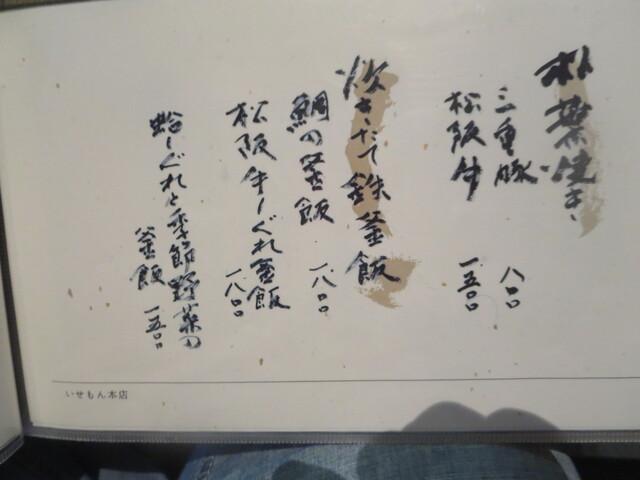 朴葉焼き
三重豚 八〇〇
松阪牛 一五〇〇
炊きたて鉄釜飯
鯛の釜飯 一八〇〇
松阪牛しぐれ釜飯 一八〇〇
蛤しぐれと季節野菜の
釜飯 一五〇〇
いせもん本店